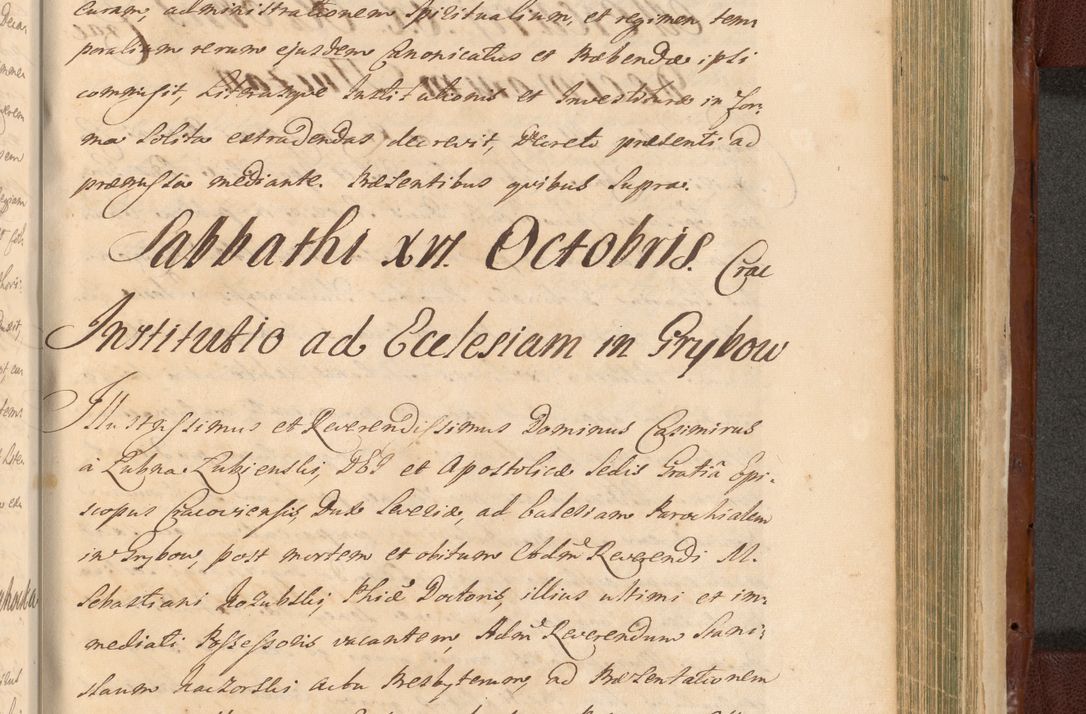 curam, administrationem Spiritualium, et regimen tem
poralium rerum ejusdem Canonicatus et Præbendæ ipsi
commisit, Literasque Institutionis et Investituræ in for:
ma solita extradendas decrevit, Decreti præsenti ad
præmissa mediante. Præsentibus quibus supra.
Sabbathi XVI. Octobris. Crac
Institutio ad Ecclesiam in Grybow
Illustrissimus et Reverendissimus Dominus Casimirus
à Lubna Lubienski, DEI et Apostolicæ Sedis Gratiâ Epi:
scopus Cracoviensis, Dux Severiæ, ad Ecclesiam Parochialem
in Grybow, post mortem et obitum Eadm. Reverendi M.
Sebastiani Phiæ Doctoris, illius ultimi et im:
mediati Possessoris vacantem, Adm. Reverendum Stani:
slaum actu Presbyterum, ad Præsentationem